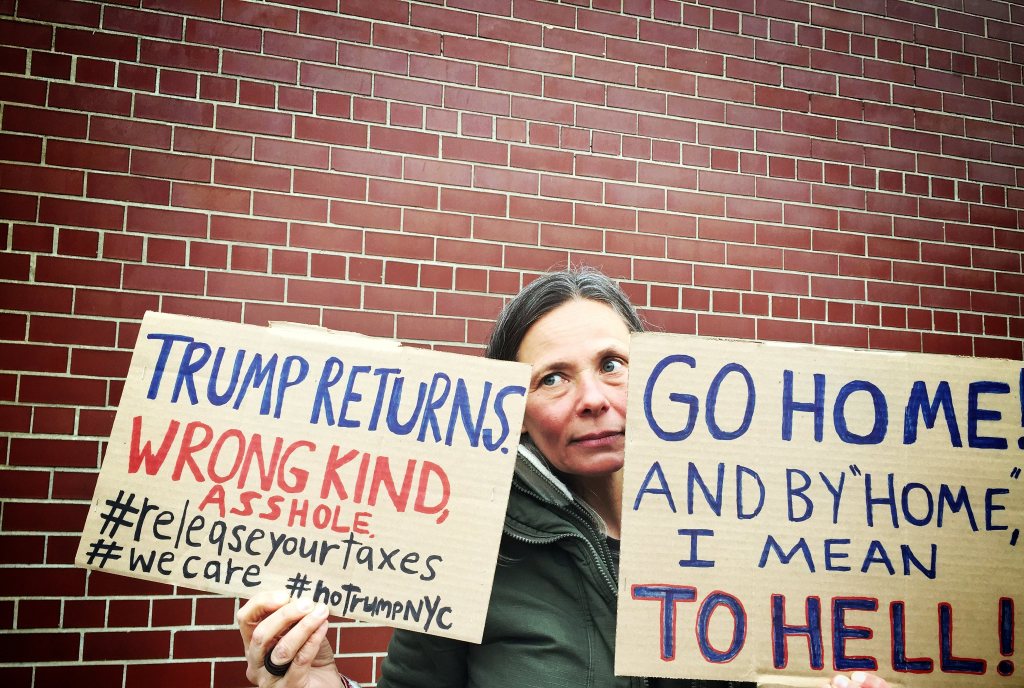 TRUMP RETURNS.
WRONG KIND,
ASSHOLE.
#releaseyourtaxes
#wecare #noTrumpNYC
GO HOME!
AND BY "HOME",
I MEAN
TO HELL!